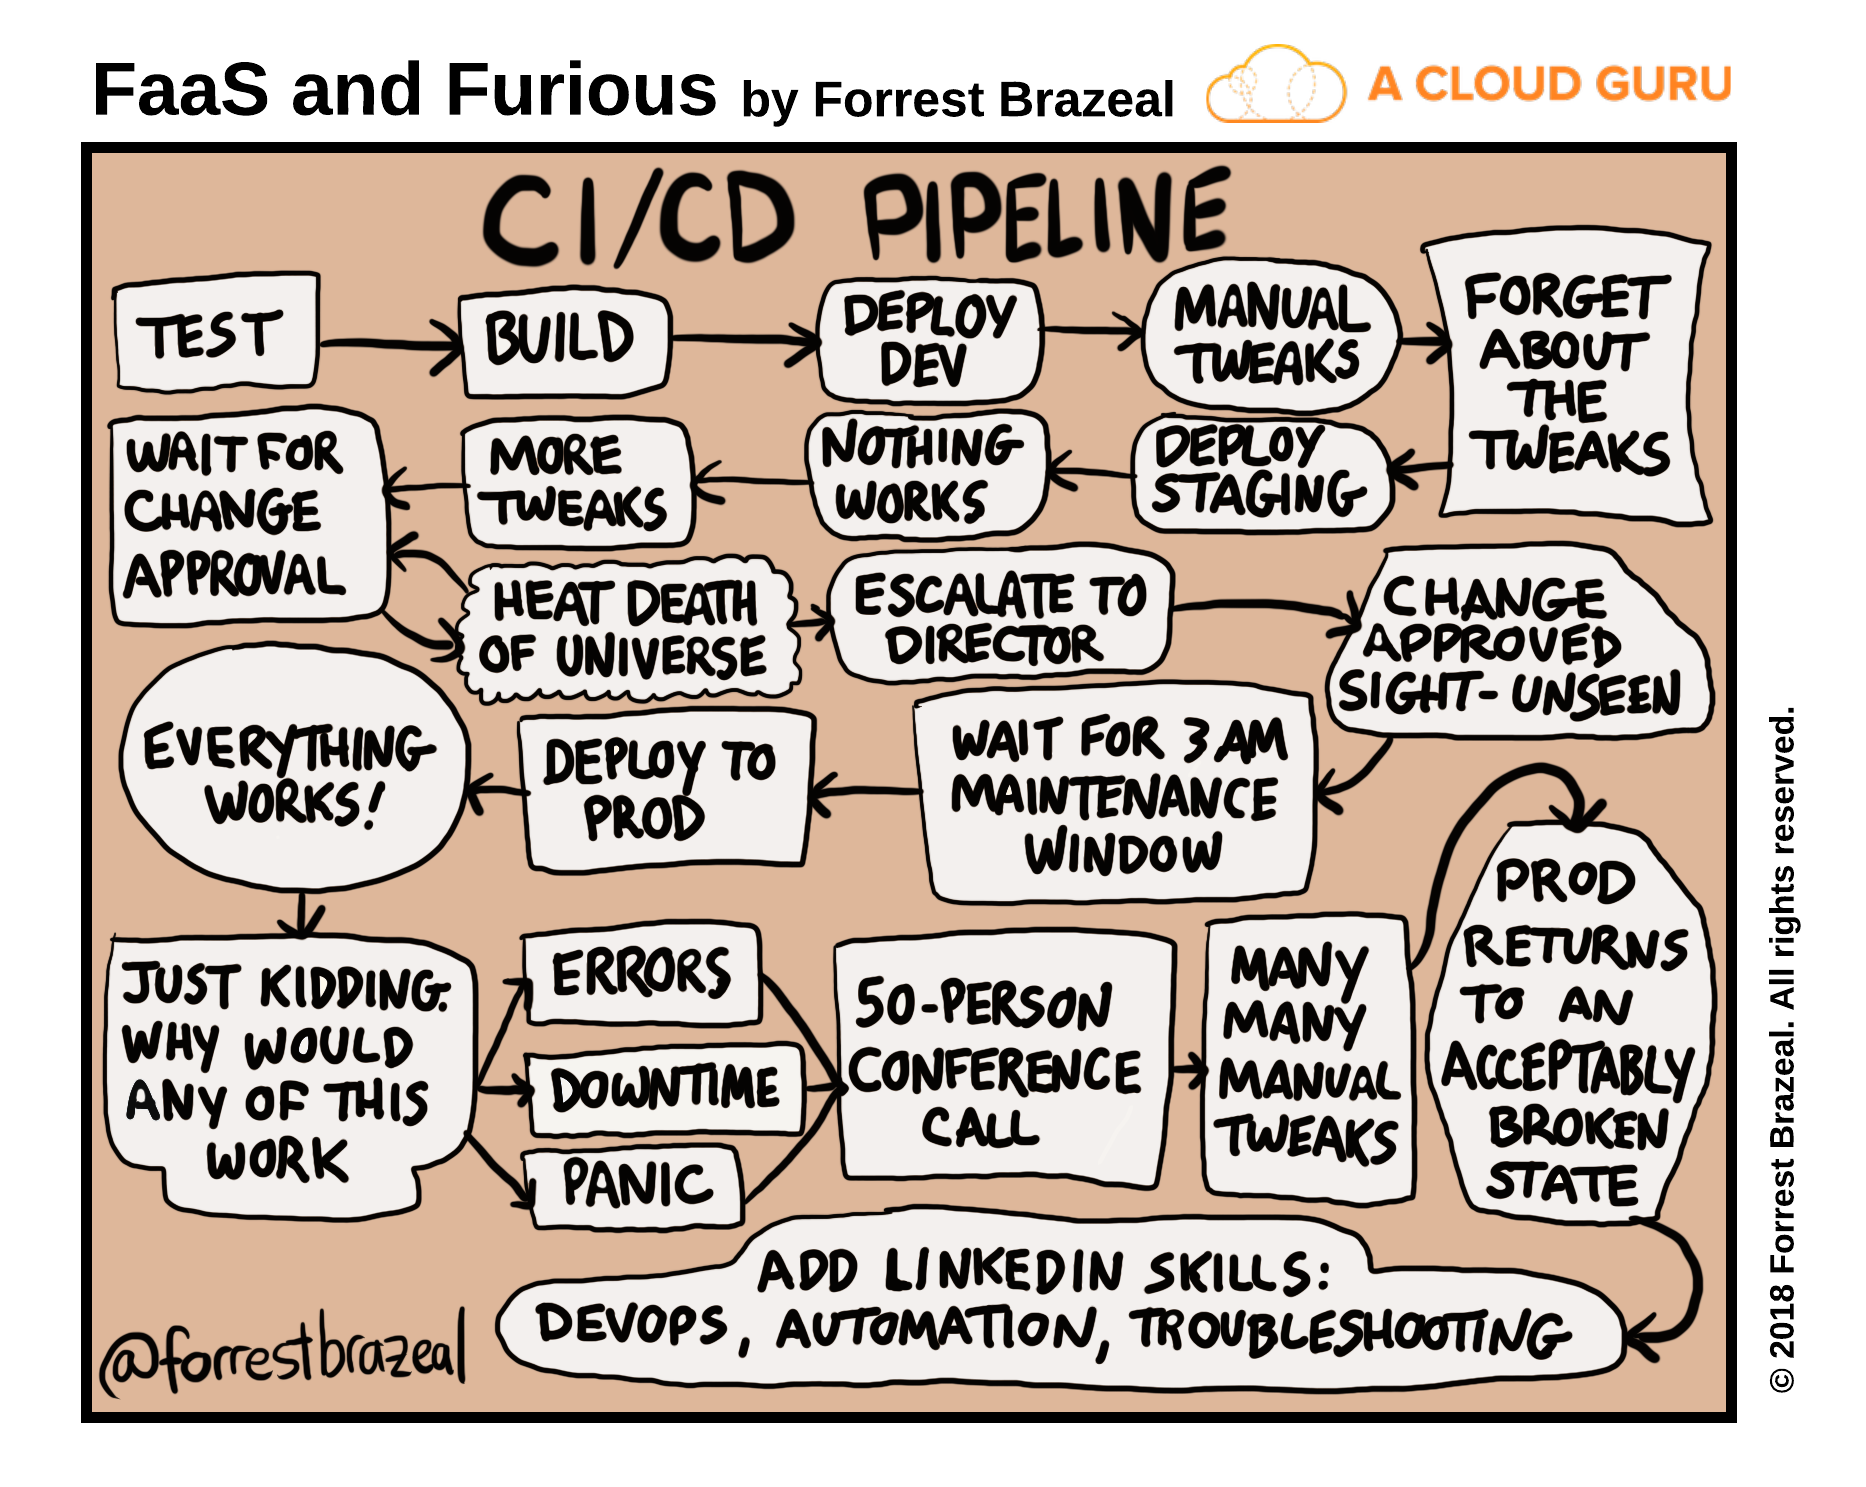 FaaS and Furious by Forrest Brazeal
A CLOUD GURU
CI/CD PIPELINE
TEST
BUILD
DEPLOY
DEV
MANUAL
TWEAKS
FORGET
ABOUT
THE
TWEAKS
DEPLOY
STAGING
NOTHING
WORKS
MORE
TWEAKS
WAIT FOR
CHANGE
APPROVAL
HEAT DEATH
OF UNIVERSE
ESCALATE TO
DIRECTOR
CHANGE
APPROVED
SIGHT-UNSEEN
WAIT FOR 3 AM
MAINTENANCE
WINDOW
DEPLOY TO
PROD
EVERYTHING
WORKS!
JUST KIDDING.
WHY WOULD
ANY OF THIS
WORK
ERRORS
DOWNTIME
PANIC
50-PERSON
CONFERENCE
CALL
MANY
MANY
MANUAL
TWEAKS
PROD
RETURNS
TO AN
ACCEPTABLY
BROKEN
STATE
ADD LINKEDIN SKILLS:
DEVOPS, AUTOMATION, TROUBLESHOOTING
@forrestbrazeal
© 2018 Forrest Brazeal. All rights reserved.